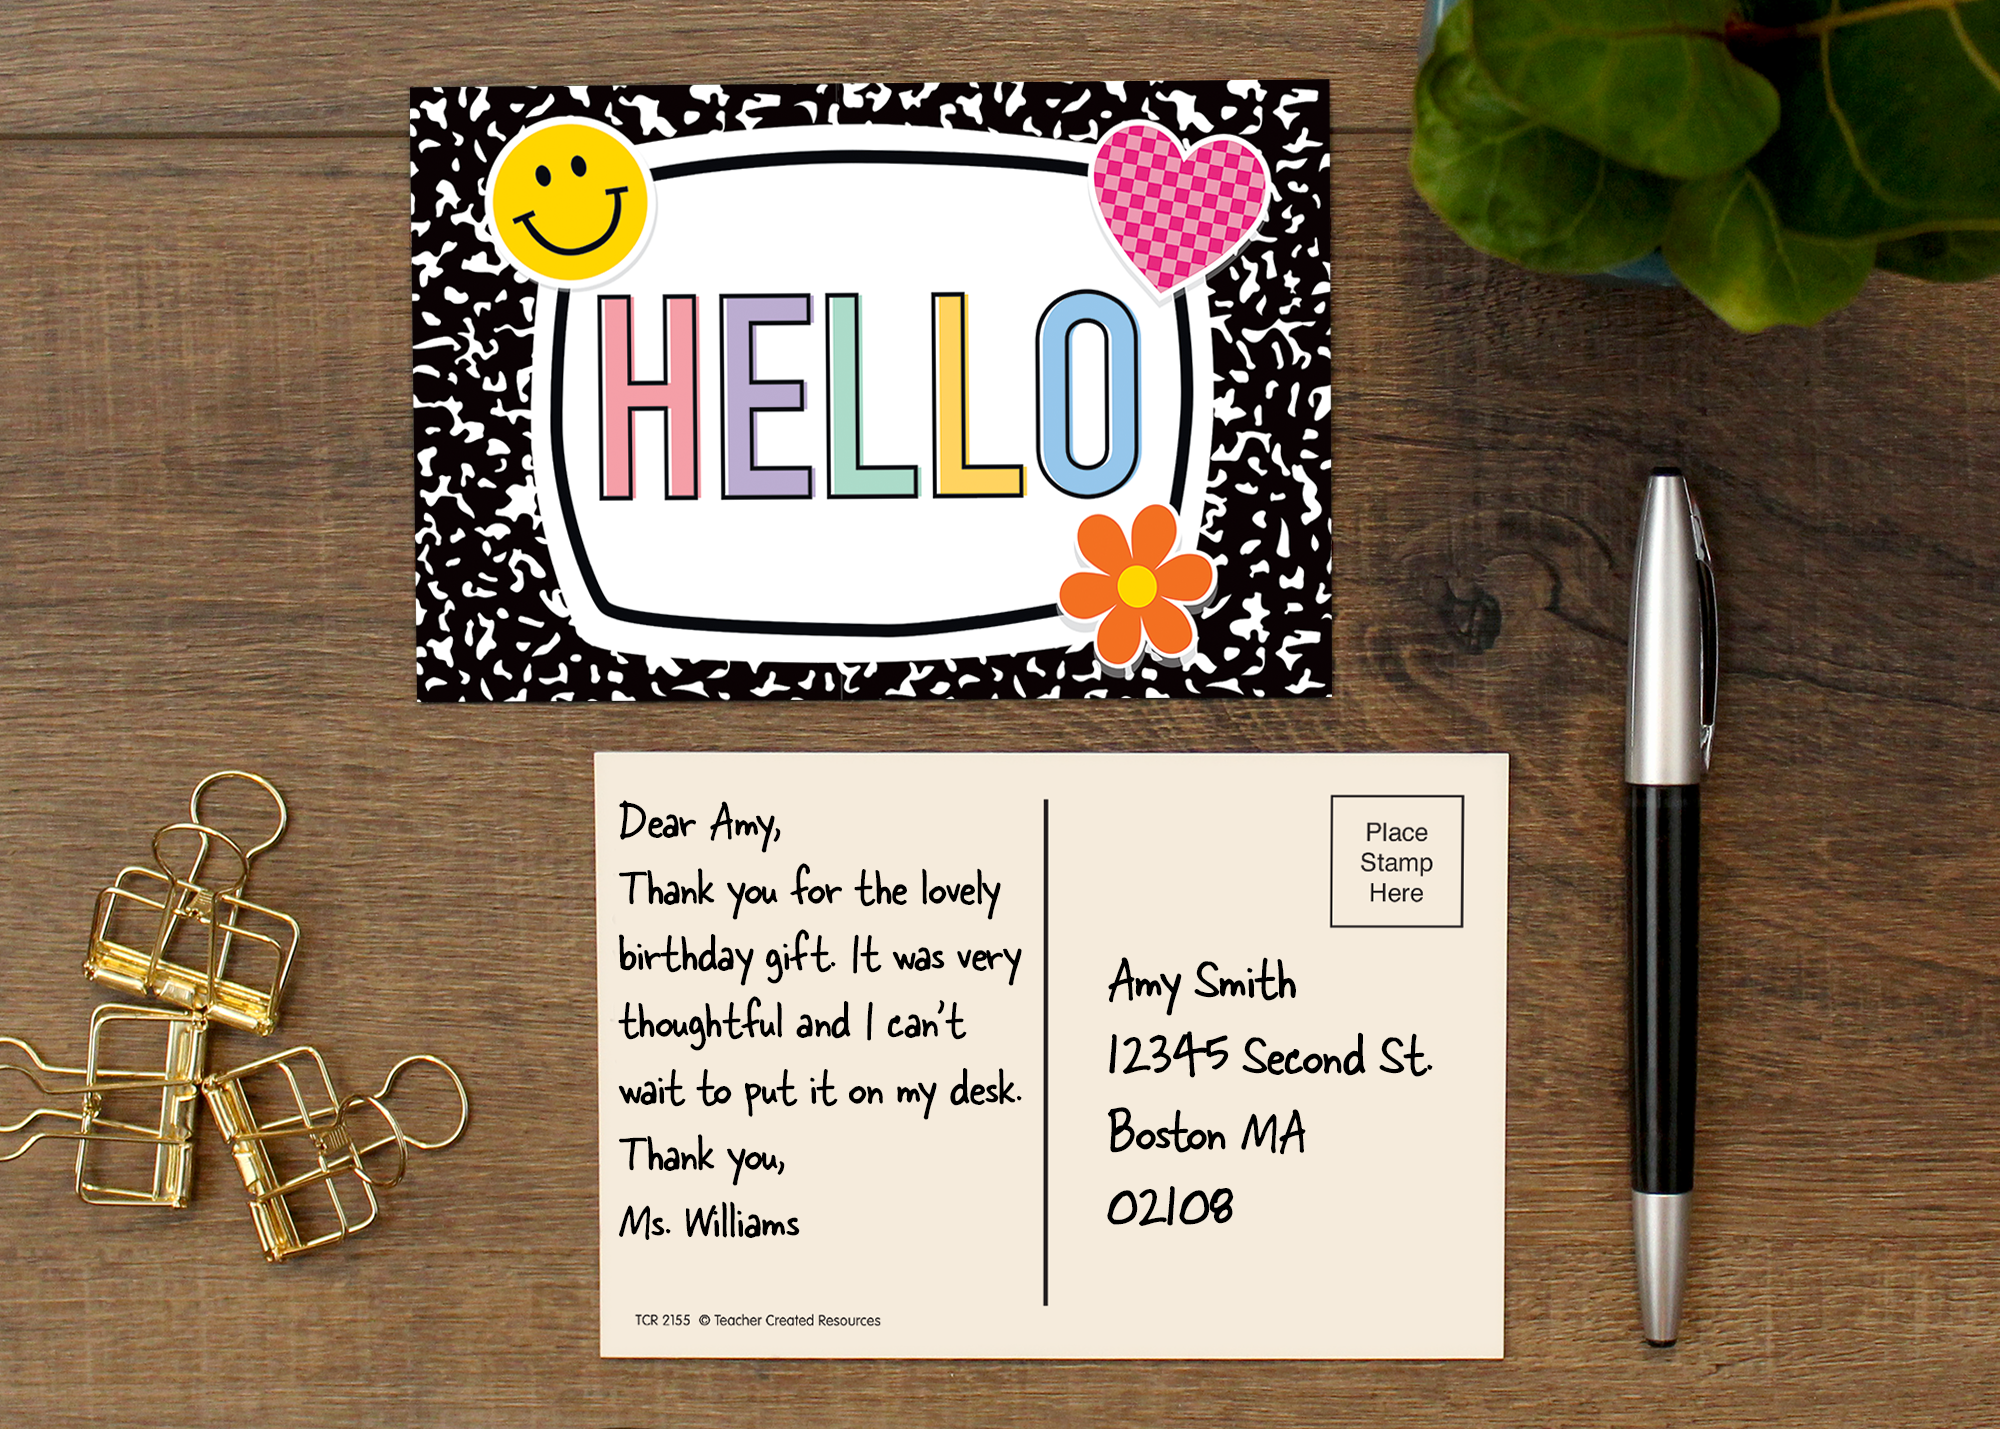 HELLO
Dear Amy,
Thank you for the lovely
birthday gift. It was very
thoughtful and I can't
wait to put it on my desk.
Thank you,
Ms. Williams
TCR 2155 © Teacher Created Resources
Place
Stamp
Here
Amy Smith
12345 Second St.
Boston MA
02108